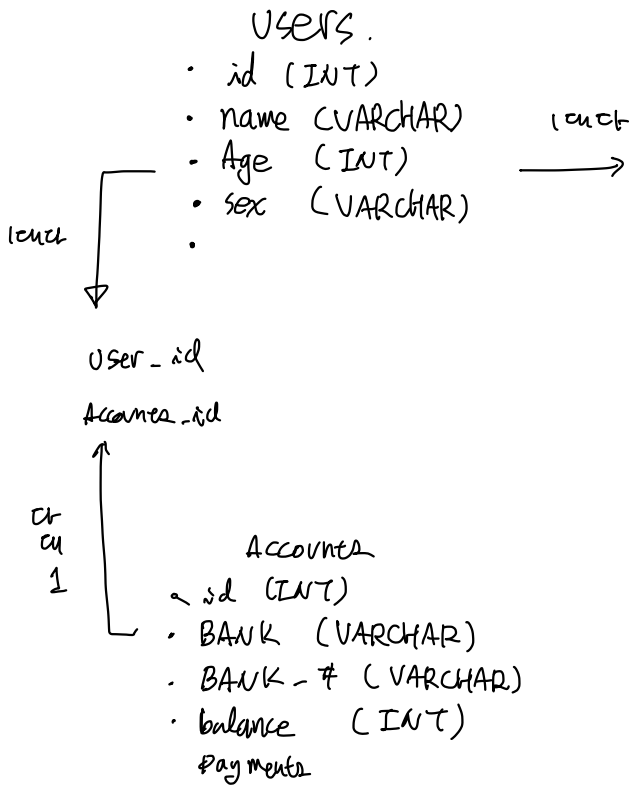 Users.
· id (INT)
· name (VARCHAR)
1대다
· Age (INT)
· sex (VARCHAR)
1대다
·
User_id
Accounts_id
다
대
1
Accounts
· id (INT)
· BANK (VARCHAR)
· BANK_# (VARCHAR)
· balance (INT)
payments